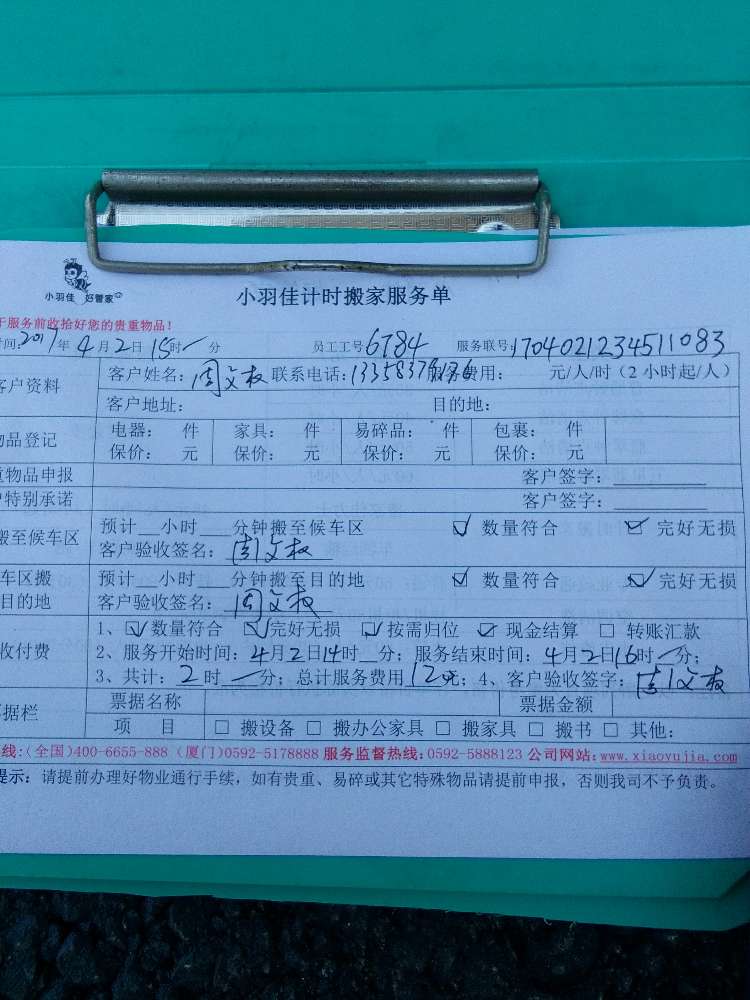 小羽佳 好管家
小羽佳计时搬家服务单
于服务前收拾好您的贵重物品！
时间:2017年4月2日15时/分 员工工号6784 服务联号:1704021234511083
客户资料 客户姓名： 联系电话：1335837 服务费用： 元/人/时（2小时起/人）
客户地址： 目的地：
物品登记 电器： 件 家具： 件 易碎品： 件 包裹： 件
保价： 元 保价： 元 保价： 元 保价： 元
重物品申报 客户签字：
户特别承诺 客户签字：
搬至候车区 预计__小时___分钟搬至候车区 ☑ 数量符合 ☑ 完好无损
客户验收签名：
车区搬 预计__小时___分钟搬至目的地 ☑ 数量符合 ☑ 完好无损
目的地 客户验收签名：
1、☑数量符合 ☑完好无损 ☑按需归位 ☑现金结算 □ 转账汇款
收付费 2、服务开始时间：4月2日14时__分；服务结束时间：4月2日16时/分；
3、共计：2时/分；总计服务费用12元；4、客户验收签字：
据栏 票据名称 票据金额
项 目 □ 搬设备 □ 搬办公家具 □ 搬家具 □ 搬书 □ 其他：
线:(全国)400-6655-888（厦门)0592-5178888 服务监督热线：0592-5888123 公司网站：www.xiaoyujia.com
提示：请提前办理好物业通行手续，如有贵重、易碎或其它特殊物品请提前申报，否则我司不予负责。